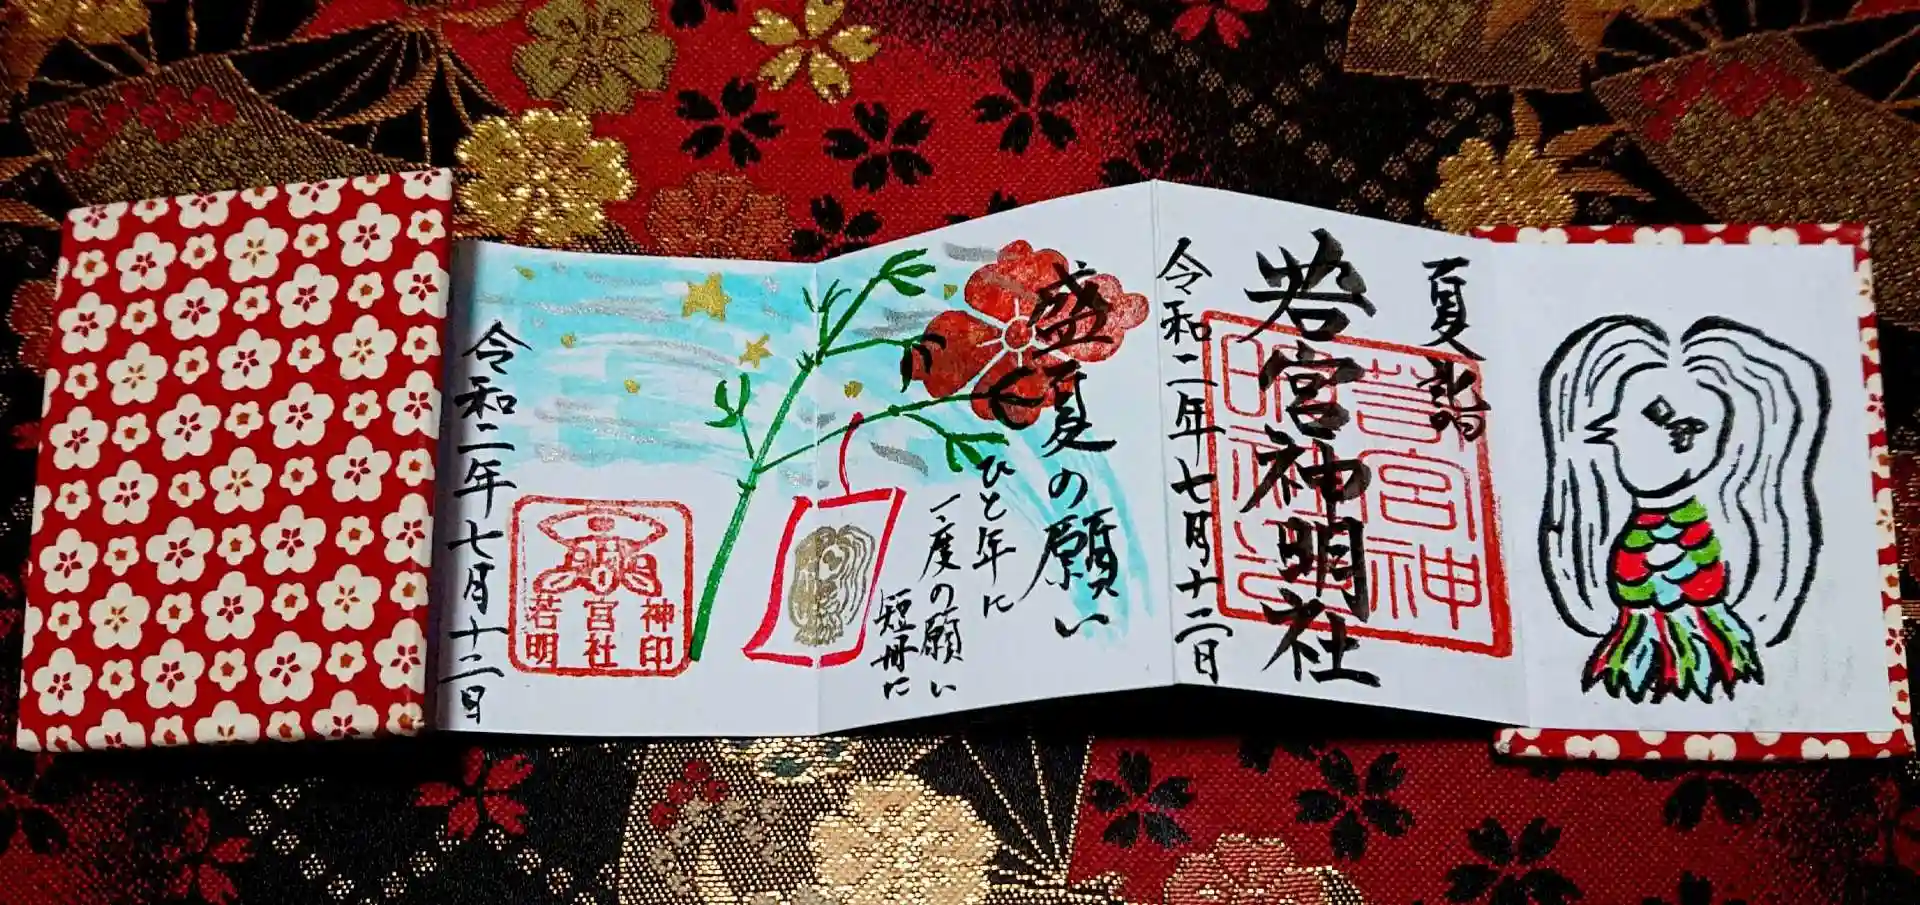 夏詣
若宮神明社
若宮神
明社
令和二年七月十二日
盛夏の願い
ひと年に
一度の願い
短冊に
神印
宮社
若明
令和二年七月十二日